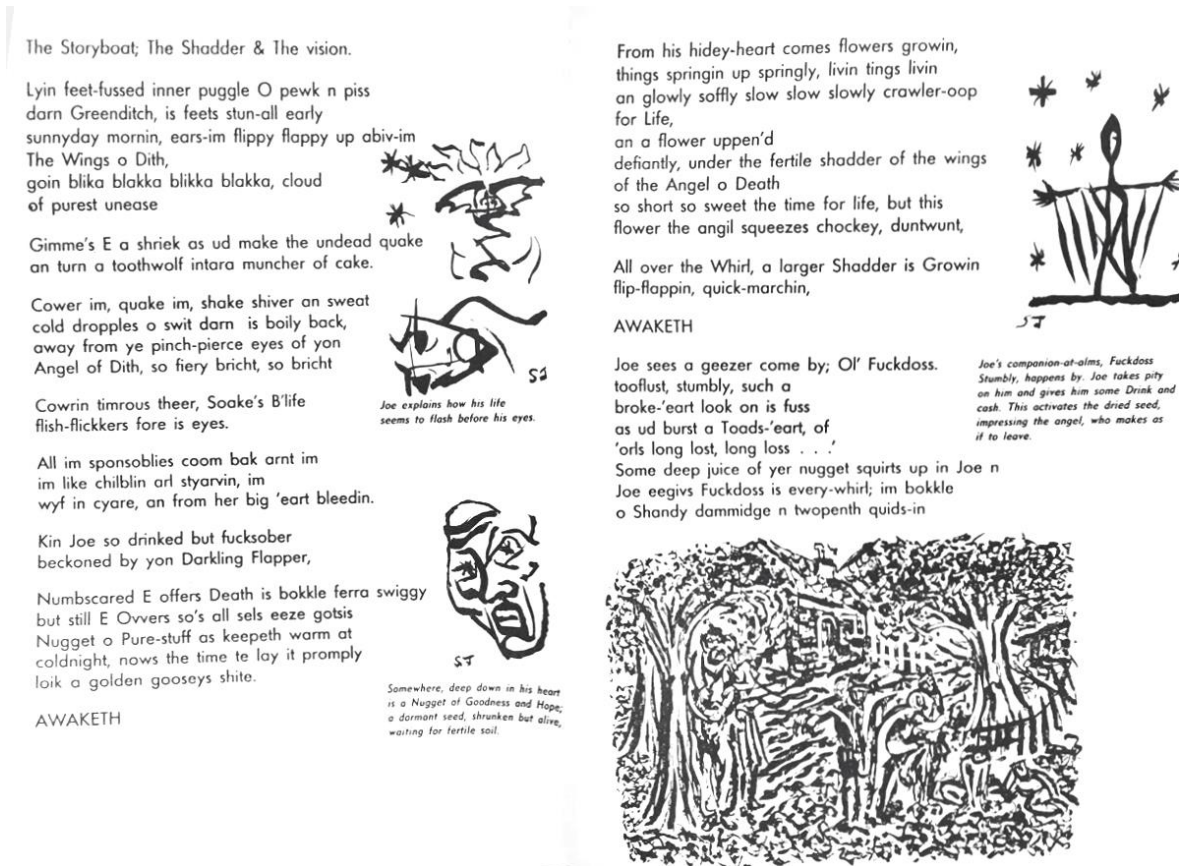 The Storyboat; The Shadder & The vision.
Lyin feet-fussed inner puggle O pewk n piss
darn Greenditch, is feets stun-all early
sunnyday mornin, ears-im flippy flappy up abiv-im
The Wings o Dith,
goin blika blakka blikka blakka, cloud
of purest unease
Gimme's E a shriek as ud make the undead quake
an turn a toothwolf intara muncher of cake.
Cower im, quake im, shake shiver an sweat
cold dropples o swit darn is boily back,
away from ye pinch-pierce eyes of yon
Angel of Dith, so fiery bricht, so bricht
SJ
Joe explains how his life
seems to flash before his eyes.
Cowrin timrous theer, Soake's B'life
flish-flickkers fore is eyes.
All im sponsoblies coom bak arnt im
im like chilblin arl styarvin, im
wyf in cyare, an from her big 'eart bleedin.
Kin Joe so drinked but fucksober
beckoned by yon Darkling Flapper,
Numbscared E offers Death is bokkle ferra swiggy
but still E Ovvers so's all sels eeze gotsis
Nugget o Pure-stuff as keepeth warm at
coldnight, nows the time te lay it promply
loik a golden gooseys shite.
SJ
Somewhere, deep down in his heart
is a Nugget of Goodness and Hope;
a dormant seed, shrunken but alive,
waiting for fertile soil.
AWAKETH
From his hidey-heart comes flowers growin,
things springin up springly, livin tings livin
an glowly soffly slow slow slowly crawler-oop
for Life,
an a flower uppen'd
defiantly, under the fertile shadder of the wings
of the Angel o Death
so short so sweet the time for life, but this
flower the angil squeezes chockey, duntwunt,
All over the Whirl, a larger Shadder is Growin
flip-flappin, quick-marchin,
SJ
AWAKETH
Joe sees a geezer come by; Ol' Fuckdoss.
tooflust, stumbly, such a
broke-'eart look on is fuss
as ud burst a Toads-'eart, of
'orls long lost, long loss . . .'
Some deep juice of yer nugget squirts up in Joe n
Joe eegivs Fuckdoss is every-whirl; im bokkle
o Shandy dammidge n twopenth quids-in
Joe's companion-at-alms, Fuckdoss
Stumbly, happens by. Joe takes pity
on him and gives him some Drink and
cash. This activates the dried seed,
impressing the angel, who makes as
if to leave.